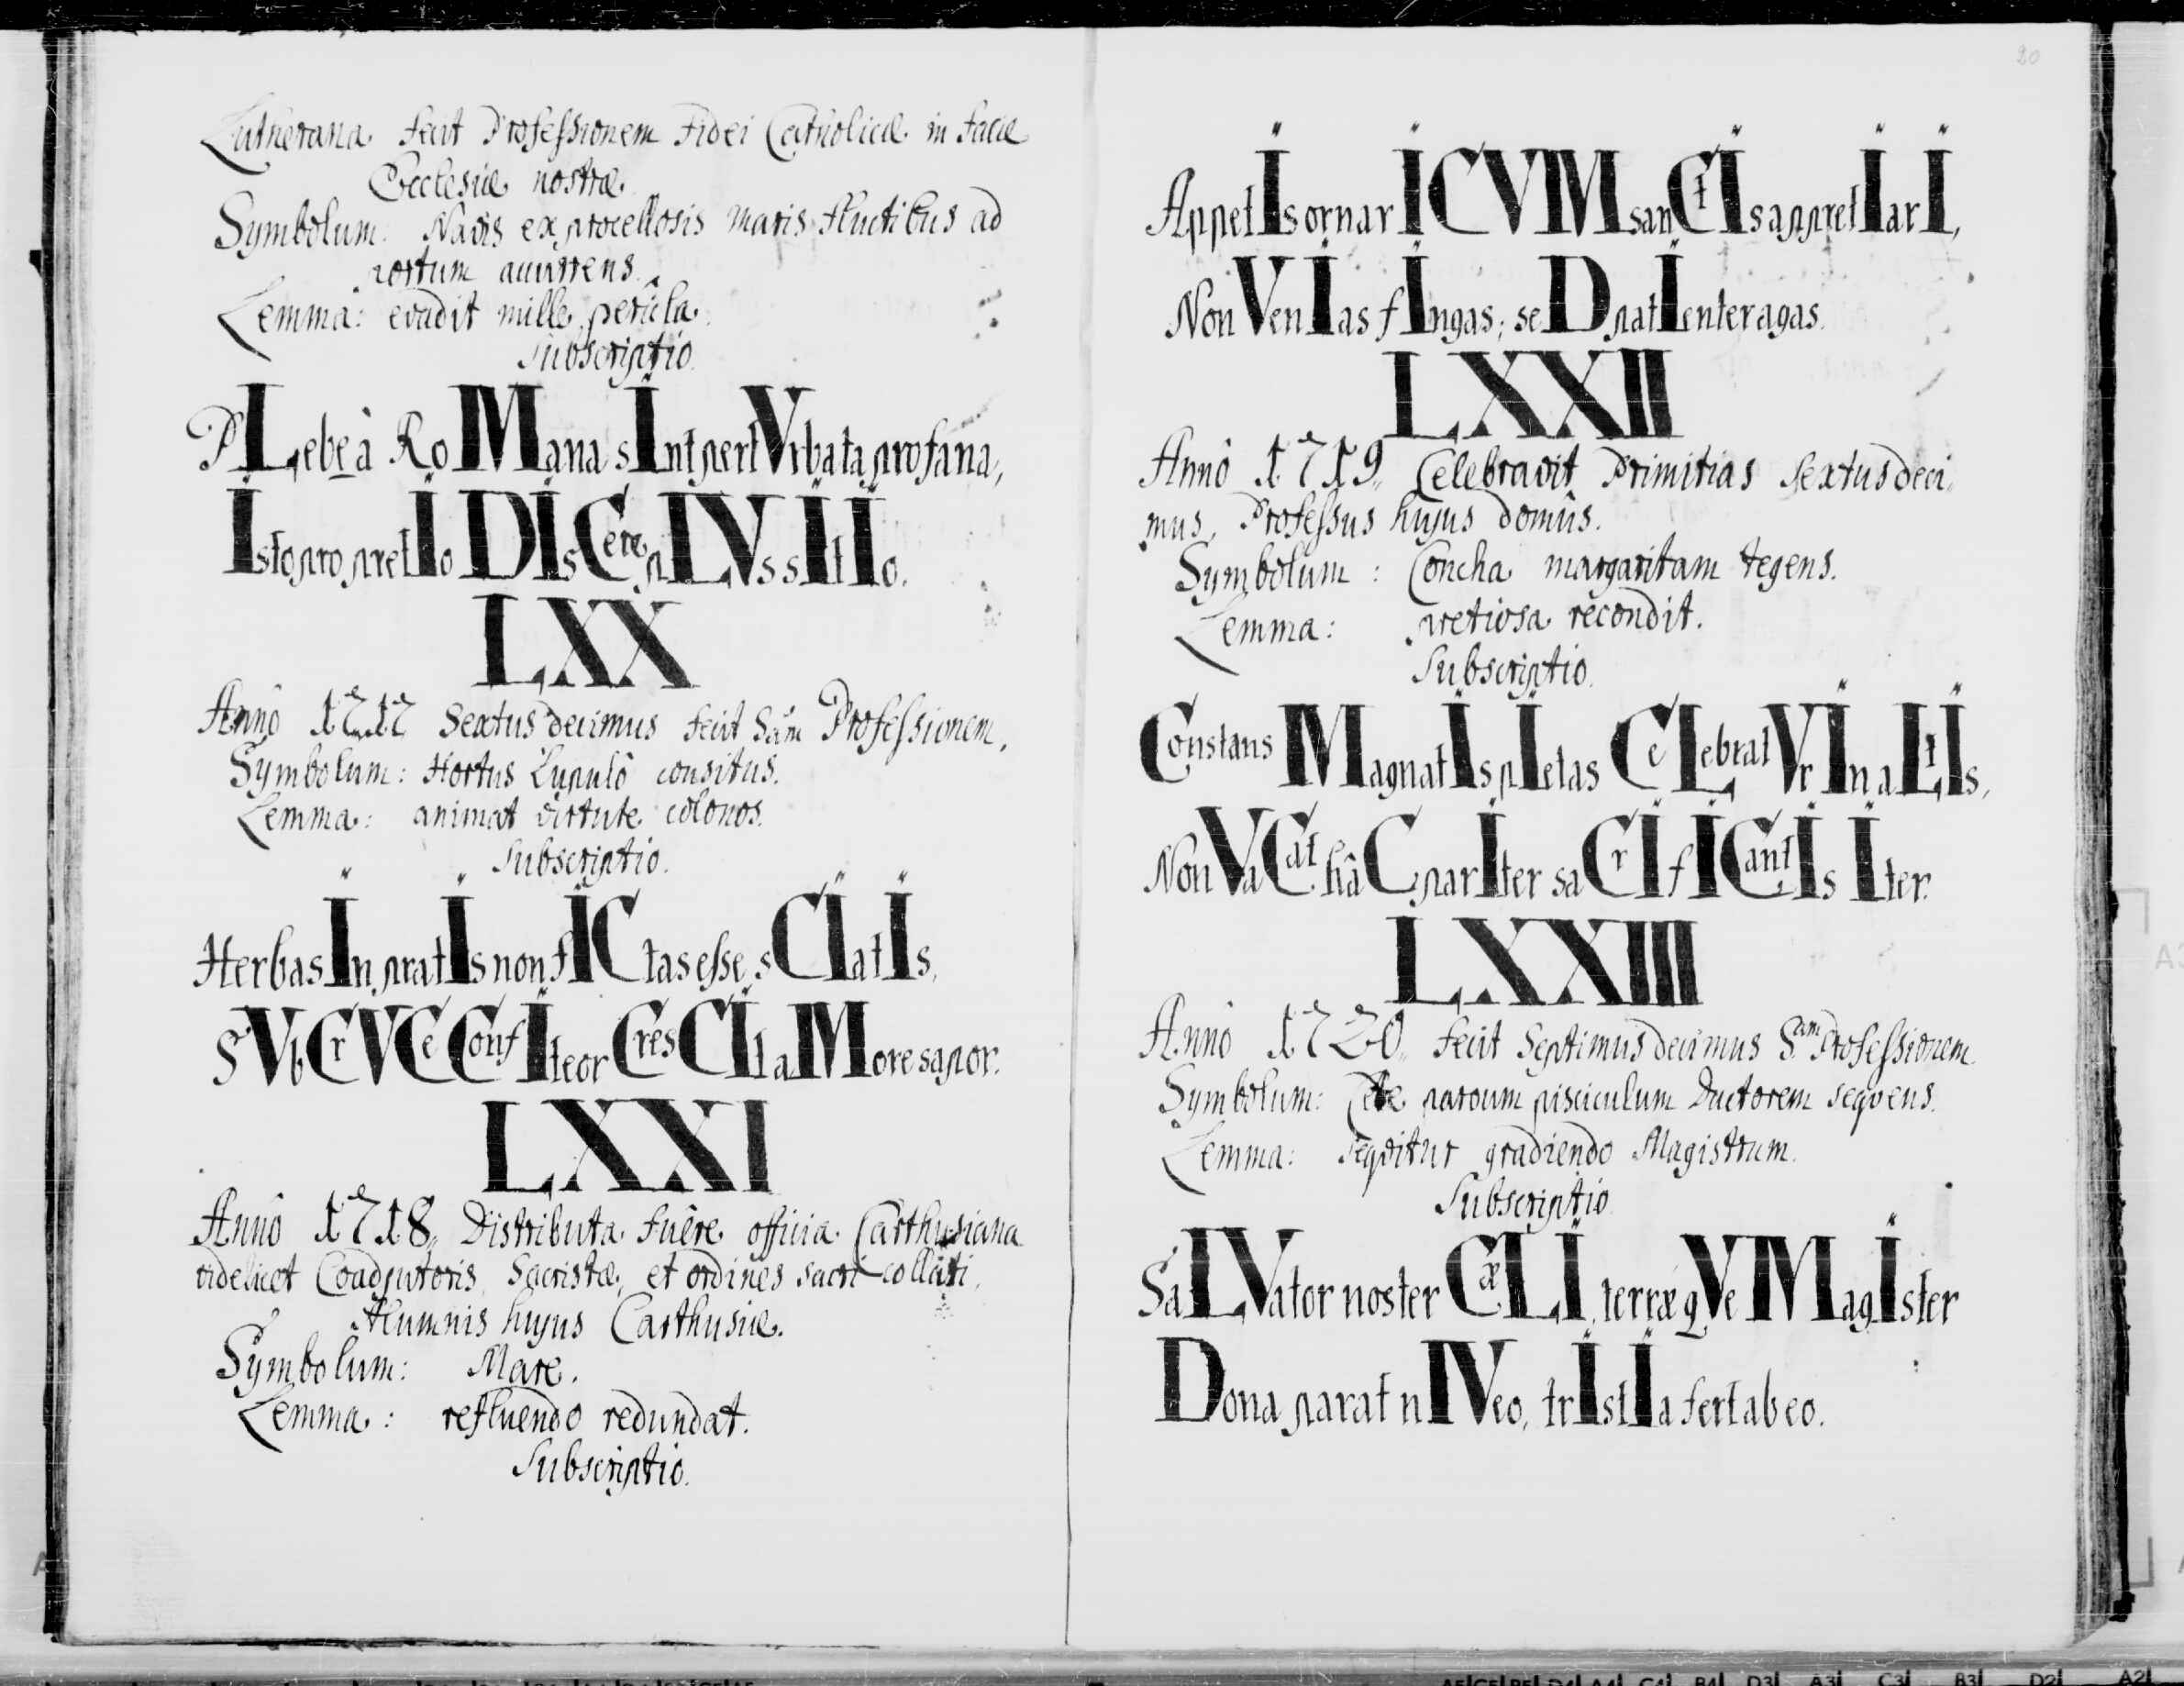 Lutherana fecit Professionem Fidei Catholicæ in facie
Ecclesiæ nostræ.
Symbolum: Navis ex procellosis maris fluctibus ad
portum currens.
Lemma: evadit mille pericla.
Subscriptio.
PLebe à RoMana sInt pertVrbata profana,
Isto pro pretIo DIsCere pLVs sItIo.
LXX
Annô 1717 Sextus decimus fecit Sam Professionem.
Symbolum: Hortus Lupulô consitus.
Lemma: animat virtute colonos.
Subscriptio.
Herbas In pratIs non fICtas esse sCIatIs,
SVb CrVCe ConfIteor CresCIt aMore sapor.
LXXI
Annô 1718,, Distributa fuêre officia Carthusiana
videlicet Coadjutoris, Sacristæ, et ordines sacri collati
Alumnis hujus Carthusiæ.
Symbolum: Mare.
Lemma: refluendo redundat.
Subscriptio.
20
AppetIs ornarI CVM sanCtIs appretIarI,
Non VenIas fIngas; seD patIenter agas.
LXXII
Annô 1719,, Celebravit Primitias Sextusdeci
mus, Professus hujus domûs.
Symbolum: Concha margaritam tegens.
Lemma: pretiosa recondit.
Subscriptio.
Constans MagnatIs pIetas CeLebratVr In aLtIs,
Non VaCat hâC parIter saCrIfICantIs Iter.
LXXIII
Annô 1720,, fecit Septimus decimus Sam Professionem
Symbolum: Cete parvum pisciculum Ductorem seqvens.
Lemma: seqvitur gradiendo Magistrum.
Subscriptio
SaLVator noster CæLI, terræ qVe MagIster
Dona parat nIVeo, trIstIa fert ab eo.